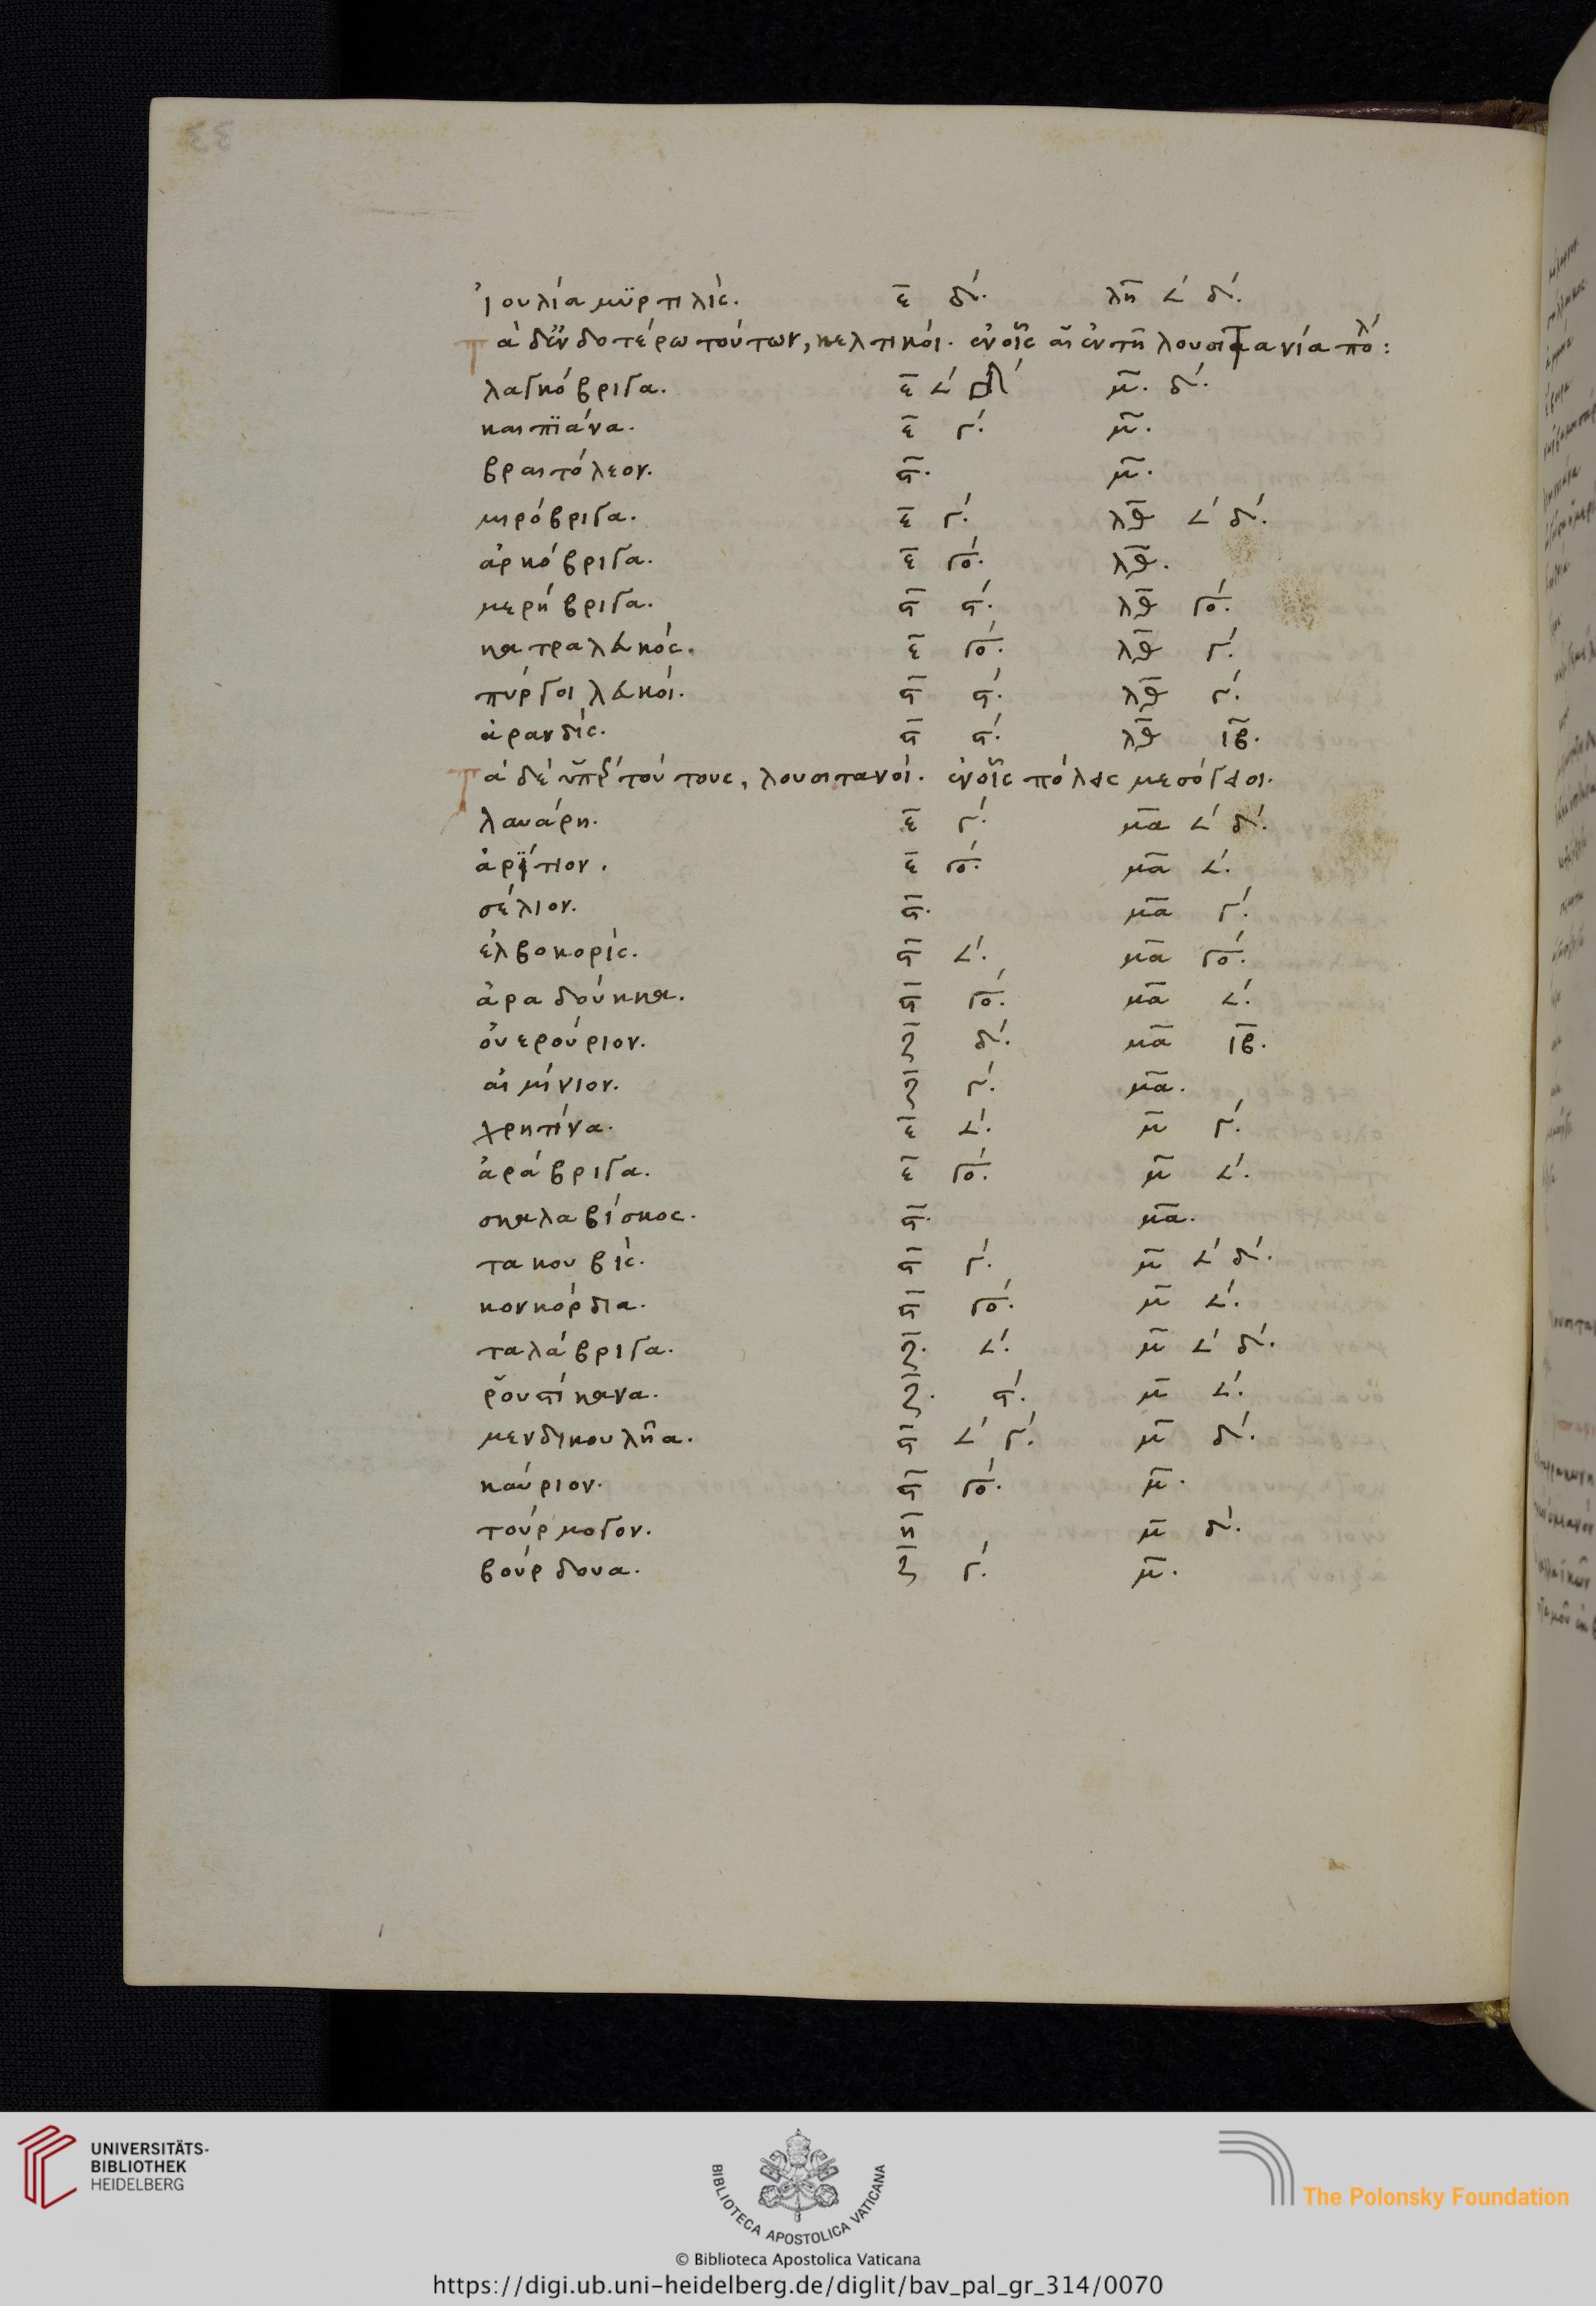 ἰουλία μϋρτιλίς. ε̄ δ´. λη̄ ∠´ δ´.
Τὰ δ' ἐνδοτέρω τούτων, κελτικοί. ἐν οἷς αἱ ἐν τῆ λουσιτανία πό^λ:
λαγκόβριγα. ε̄ ∠´ μ̄. δ´.
καιπϊάνα. ε̄ γ´. μ̄.
βραιτόλεον. ϛ̄. μ̄.
μιρόβριγα. ε̄ γ´. λθ̄ ∠´ δ´.
ἀρκόβριγα. ε̄ γο´. λθ̄.
μερήβριγα. ϛ̄ ϛ´. λθ̄ γο´.
κατραλευκός. ε̄ γο´. λθ̄ γ´.
πύργοι λευκοί. ϛ̄ ϛ´. λθ̄ γ´.
ἀρανδίς. ϛ̄ ϛ´. λθ̄ ιβ̄.
Τὰ δὲ ὑπὲρ τούτους, λουσιτανοί. ἐν οἷς πόλεις μεσόγειοι.
λαυάρη. ε̄ γ´. μᾱ ∠´ δ´.
ἀρίτιον. ε̄ γο´. μᾱ ∠´.
σέλιον. ϛ̄. μᾱ γ´.
ἐλβοκορίς. ϛ̄ ∠´. μᾱ γο´.
ἀραδούκκα. ϛ̄ γο´. μᾱ ∠´.
ὀυερούριον. ζ̄ δ´. μᾱ ιβ̄.
αἰμίνιον. ζ̄ γ´. μᾱ.
χρητίνα. ε̄ ∠´. μ̄ γ´.
ἀράβριγα. ε̄ γο´. μ̄ ∠´.
σκαλαβίσκος. ϛ̄. μᾱ.
τακουβίς. ϛ̄ γ´. μ̄ ∠´ δ´.
κονκόρδια. ϛ̄ γο´. μ̄ ∠´.
ταλάβριγα. ζ̄. ∠´. μ̄ ∠´ δ´.
ῥουστίκανα. ζ̄. ϛ´. μ̄ ∠´.
μενδικουλῆα. ϛ̄ ∠´ γ´. μ̄ δ´.
καύριον. ϛ̄ γο´. μ̄.
τούρμογον. μ̄ δ´.
βούρδουα. ζ̄ γ´. μ̄.
UNIVERSITÄTS-
BIBLIOTHEK
HEIDELBERG
BIBLIOTECA APOSTOLICA VATICANA
© Biblioteca Apostolica Vaticana
The Polonsky Foundation
https://digi.ub.uni-heidelberg.de/diglit/bav_pal_gr_314/0070